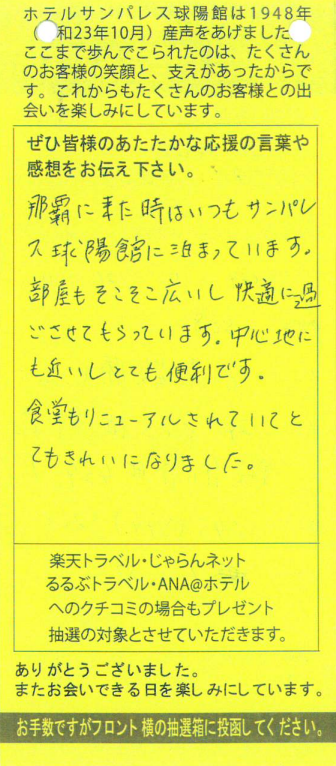 ホテルサンパレス球陽館は1948年
和23年10月）産声をあげました
ここまで歩んでこられたのは、たくさん
のお客様の笑顔と、支えがあったからで
す。これからもたくさんのお客様との出
会いを楽しみにしています。
ぜひ皆様のあたたかな応援の言葉や
感想をお伝え下さい。
那覇に来た時はいつもサンパレ
ス球陽館に泊まっています。
部屋もそこそこ広いし快適に過
ごさせてもらっています。中心地に
も近いしとても便利です。
食堂もリニューアルされていてと
てもきれいになりました。
楽天トラベル・じゃらんネット
るるぶトラベル・ANA@ホテル
へのクチコミの場合もプレゼント
抽選の対象とさせていただきます。
ありがとうございました。
またお会いできる日を楽しみにしています。
お手数ですがフロント横の抽選箱に投函してください。